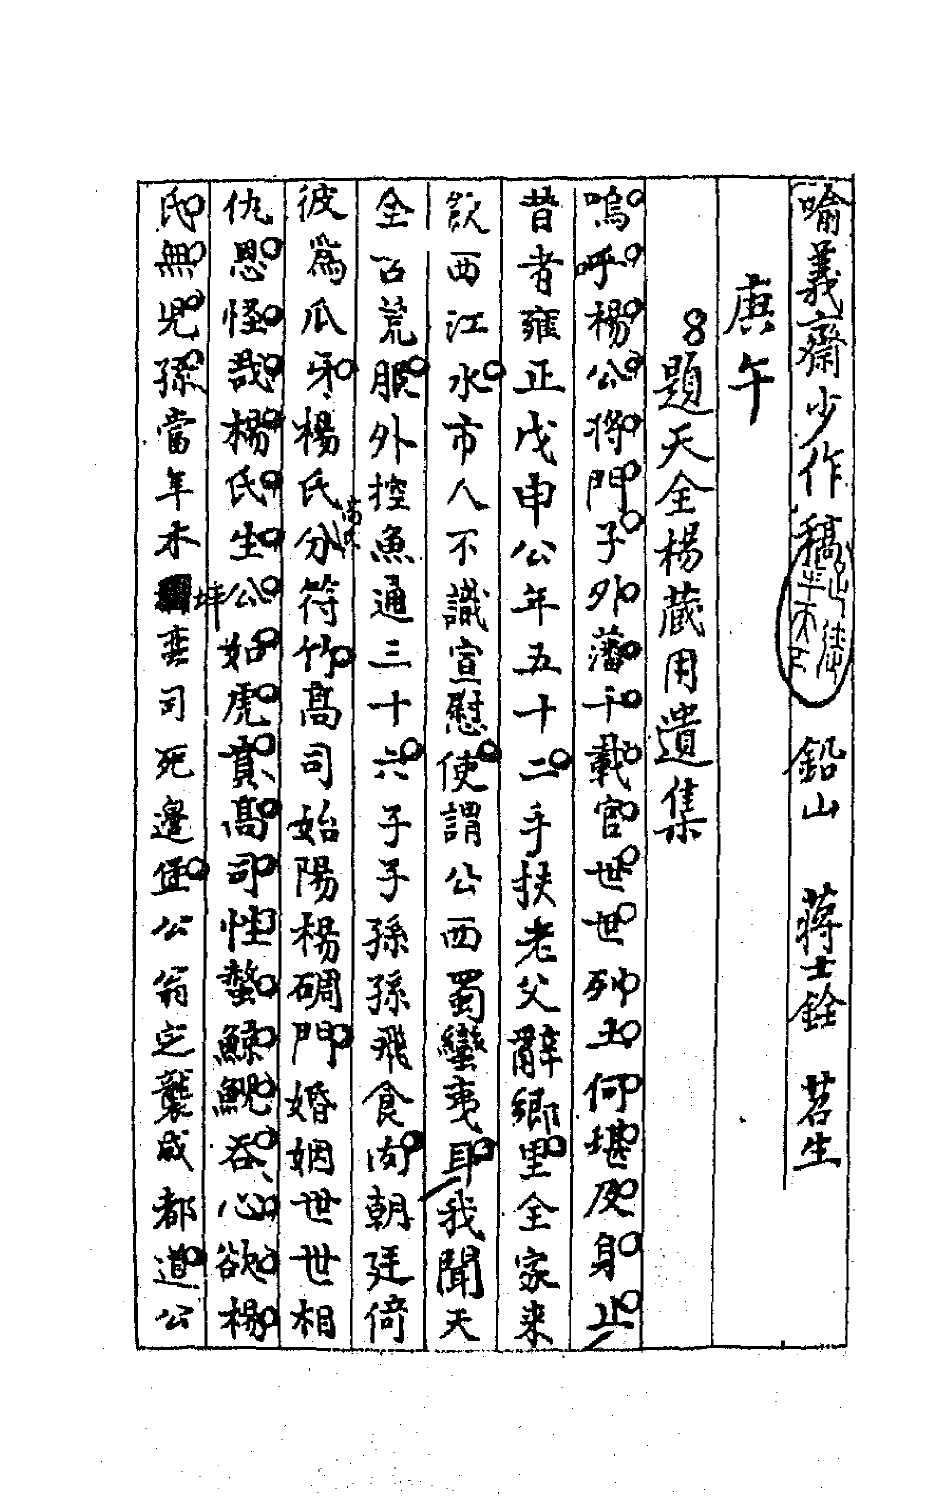 喻義齋少作稿 鉛山 蔣士銓 苕生
庚午
題天全楊蔵用遺集
嗚呼楊公将門子外藩千載官世世列土何堪及身止
昔者雍正戊申公年五十二手扶老父辭鄉里全家来
飲西江水市人不識宣慰使謂公西蜀蠻夷耳我聞天
全古荒服外控魚通三十六子子孫孫飛食肉朝廷倚
彼為瓜牙楊氏分符竹髙司始陽楊碉門婚姻世世相
仇恩怪哉楊氏生公如虎賁髙司性螫鯨鯢吞心欲楊
氏無児孫當年木坪土司死邊堡公翁㝎襲咸都道公